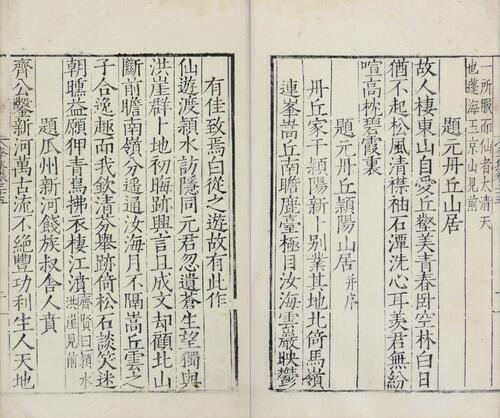 一所服而仙者太清天
也蓬海玉京山見前
題元丹丘山居
故人棲東山自愛丘壑美青春臥空林白日
猶不起松風清襟袖石潭洗心耳羨君無紛
喧高枕碧霞裏
題元丹丘潁陽山居并序
丹丘家于潁陽新卜別業其地北倚馬嶺
連峯嵩丘南瞻鹿臺極目汝海雲巖映鬱
有佳致焉白從之遊故有此作
仙遊渡潁水訪隱同元君忽遺蒼生望獨與
洪崖群卜地初晦跡興言且成文却顧北山
斷前瞻南嶺分遙通汝海月不隔嵩丘雲之
子合逸趣而我欽清芬舉跡倚松石談笑迷
朝曛益願狎青鳥拂衣棲江濆齊賢曰潁水洪崖見前
題瓜州新河餞族叔舍人賁
齊公鑿新河萬古流不絕豐功利生人天地